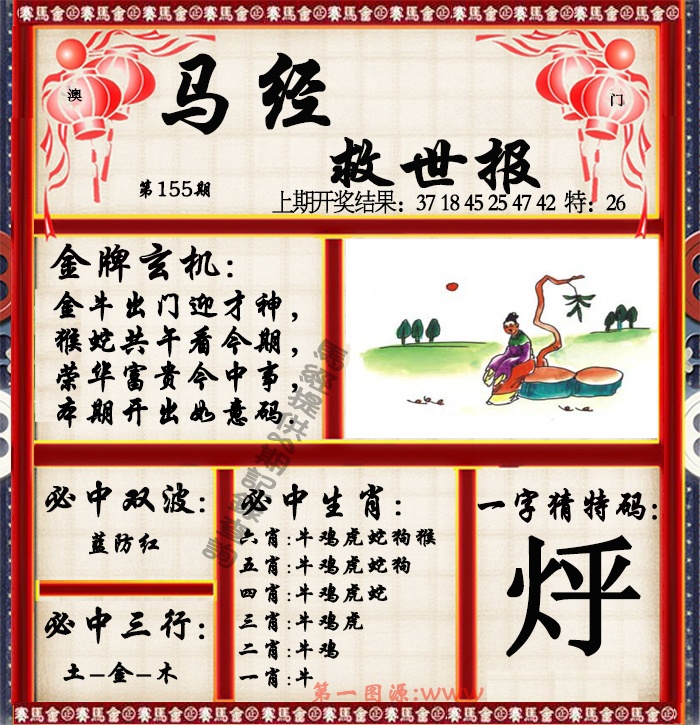 賽馬會正賽馬會正賽馬會正賽馬會正賽馬會正賽馬會正賽馬會正
澳
门
马经
救世报
第155期
上期开奖结果：37 18 45 25 47 42 特：26
金牌玄机：
金斗出门迎才神，
猴蛇共午看今期，
荣华富贵今中事，
本期开出如意码．
必中双波：
蓝防红
必中三行：
土－金－木
必中生肖：
六肖：牛鸡虎蛇狗猴
五肖：牛鸡虎蛇狗
四肖：牛鸡虎蛇
三肖：牛鸡虎
二肖：牛鸡
一肖：牛
一字猜特码：
烀
第一图源：www